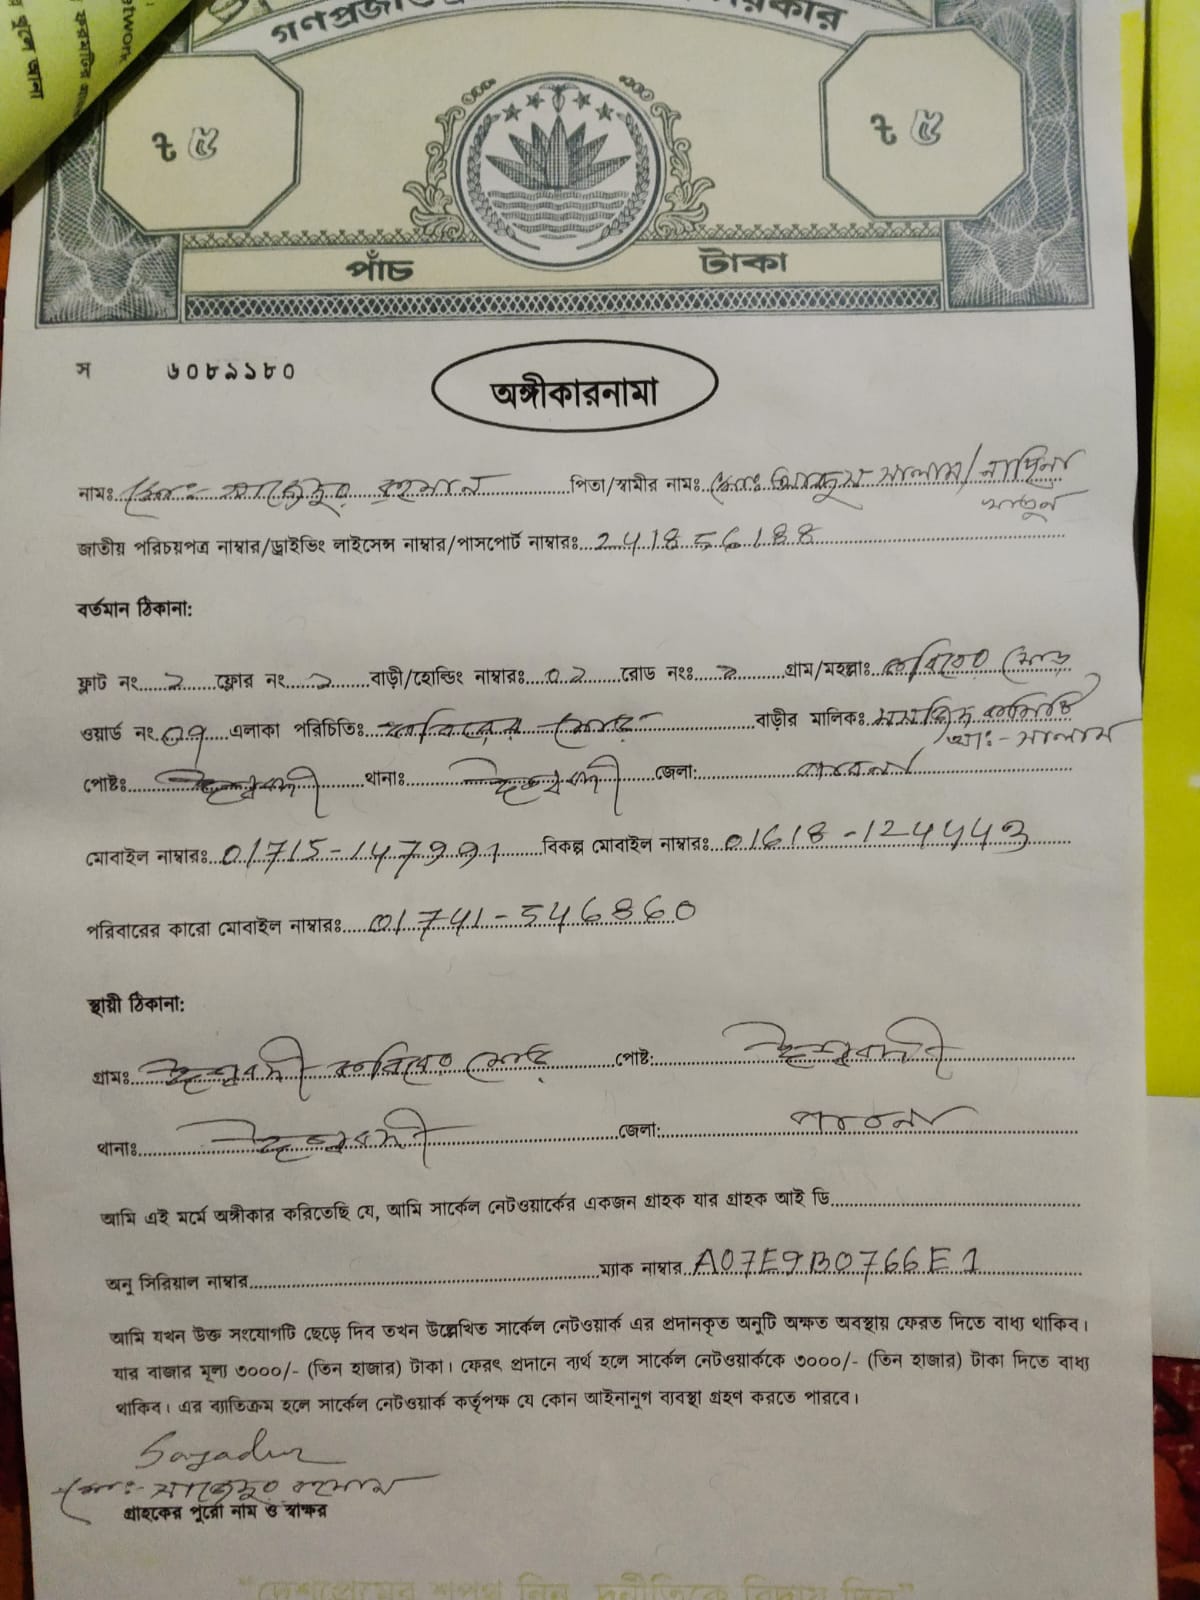 etwork
গণপ্রজাত
৳ ৫
৳ ৫
পাঁচ টাকা
স ৬০৮৯১৮০
অঙ্গীকারনামা
নামঃ মোঃ- সাজেদুর রহমান পিতা/স্বামীর নামঃ মোঃ সালাম/
খাতুন
জাতীয় পরিচয়পত্র নাম্বার/ড্রাইভিং লাইসেন্স নাম্বার/পাসপোর্ট নাম্বারঃ 241856188
বর্তমান ঠিকানা:
ফ্লাট নং 2 ফ্লোর নং বাড়ী/হোল্ডিং নাম্বারঃ 02 রোড নংঃ গ্রাম/মহল্লাঃ মোড়
ওয়ার্ড নং এলাকা পরিচিতিঃ মোড় বাড়ীর মালিকঃ
আঃ- সালাম
পোষ্টঃ ঈশ্বরদী থানাঃ ঈশ্বরদী জেলা: পাবনা
মোবাইল নাম্বারঃ বিকল্প মোবাইল নাম্বারঃ 01618-124443
পরিবারের কারো মোবাইল নাম্বারঃ 01741-546860
স্থায়ী ঠিকানা:
গ্রামঃ ঈশ্বরদী মোড় পোষ্ট: ঈশ্বরদী
থানাঃ ঈশ্বরদী জেলা: পাবনা
আমি এই মর্মে অঙ্গীকার করিতেছি যে, আমি সার্কেল নেটওয়ার্কের একজন গ্রাহক যার গ্রাহক আই ডি
অনু সিরিয়াল নাম্বার ম্যাক নাম্বার A07E9B0766E1
আমি যখন উক্ত সংযোগটি ছেড়ে দিব তখন উল্লেখিত সার্কেল নেটওয়ার্ক এর প্রদানকৃত অনুটি অক্ষত অবস্থায় ফেরত দিতে বাধ্য থাকিব।
যার বাজার মূল্য ৩০০০/- (তিন হাজার) টাকা। ফেরৎ প্রদানে ব্যর্থ হলে সার্কেল নেটওয়ার্ককে ৩০০০/- (তিন হাজার) টাকা দিতে বাধ্য
থাকিব। এর ব্যতিক্রম হলে সার্কেল নেটওয়ার্ক কর্তৃপক্ষ যে কোন আইনানুগ ব্যবস্থা গ্রহণ করতে পারবে।
Sajadur
মোঃ- সাজেদুর রহমান
গ্রাহকের পুরো নাম ও স্বাক্ষর
"দেশপ্রেমের শপথ নিন, দুর্নীতিকে বিদায় দিন"